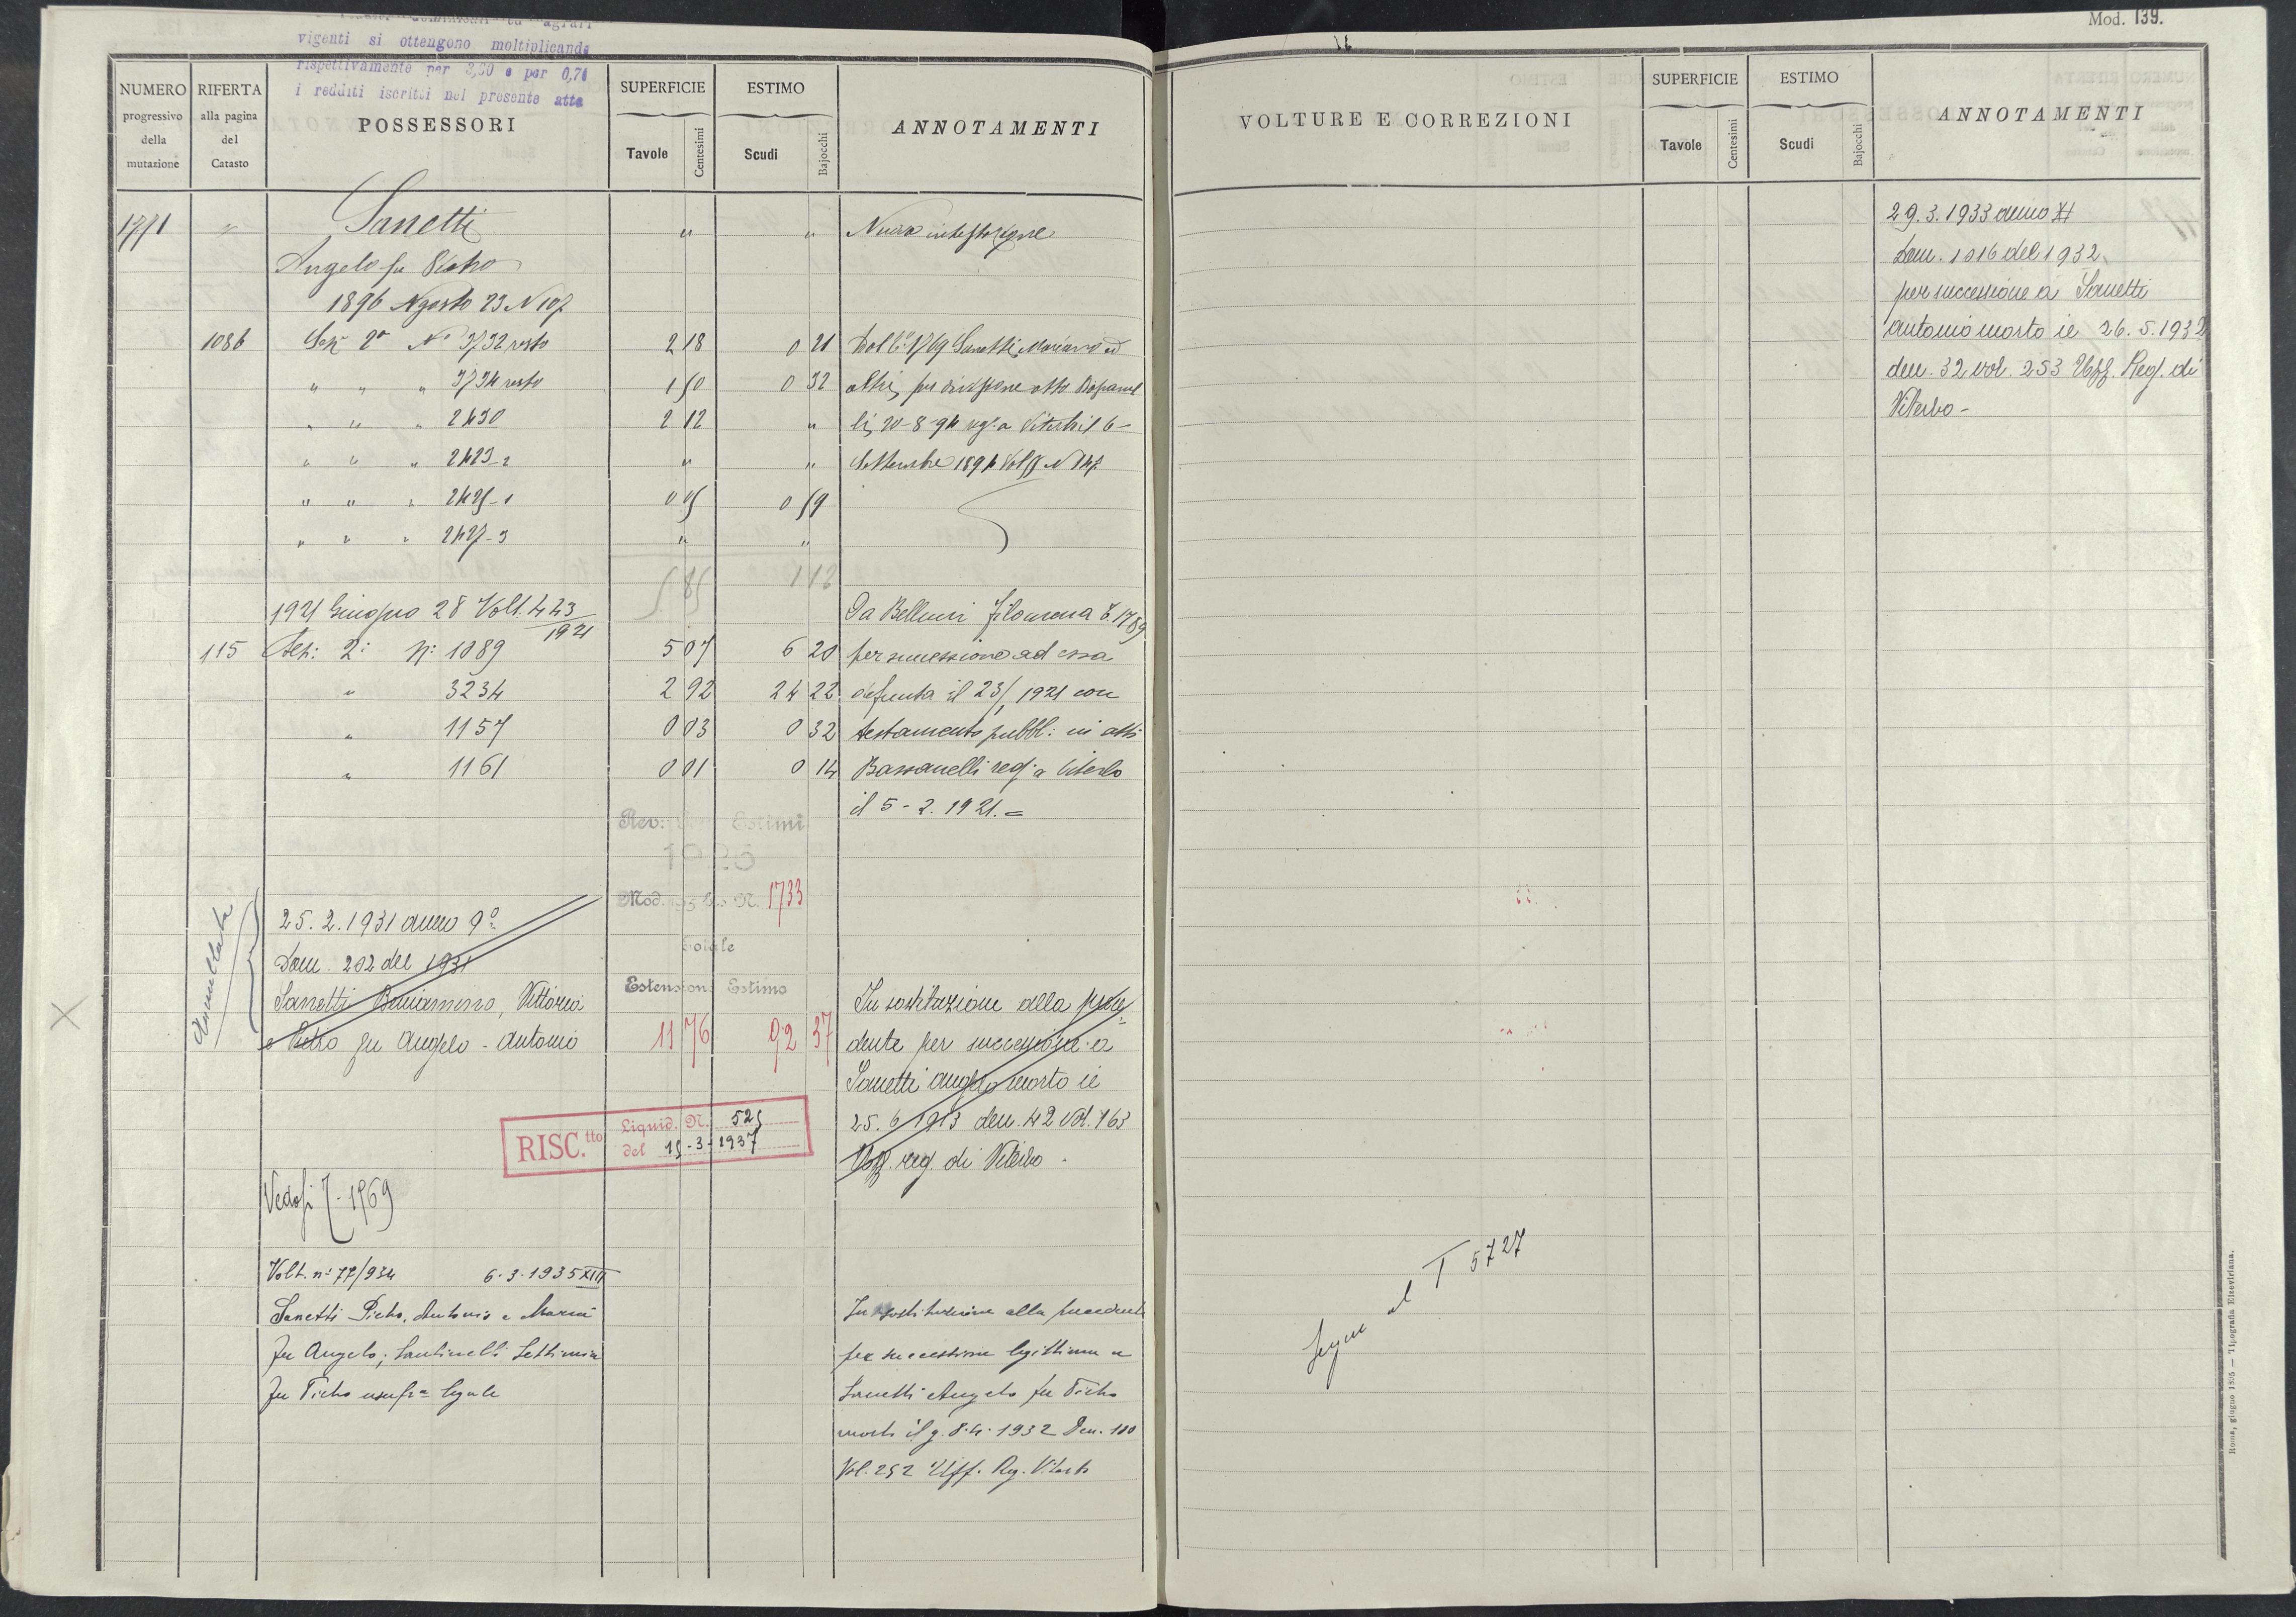 vigenti si ottengono moltiplicando
rispettivamente per 3,60 e per 0,74
i redditi iscritti nel presente atto
NUMERO progressivo della mutazione
RIFERTA alla pagina del Catasto
POSSESSORI
SUPERFICIE
Tavole Centesimi
ESTIMO
Scudi Bajocchi
ANNOTAMENTI
1771 " Sanetti " " Nuova intestazione
Angelo fu Pietro
1896 Agosto 23 N 107
1086 Sez. 2a No 3732 resto 2 18 0 21 Dal 1769 Sanetti Mariano ed
" " " 3734 resto 1 50 0 32 altri, per divisione atto
" " " 2430 2 12 " li, 20-8-94 reg. a Viterbo il 6
" " " 2423-2 " " Settembre 1894 Vol N 147
" " " 2425-1 0 05 0 59
" " " 2427-3 " "
5 85 1 12
1921 Giugno 28 Volt. 443/1921 Da Belluni Filomena 1789
115 Sez: 2: N: 1089 5 07 6 20 per successione ad essa
" 3234 2 92 24 22 defunta il 23/1 1921 con
" 1157 0 03 0 32 testamento pubbl: in atti
" 1161 0 01 0 14 Bassanelli reg. a Viterbo
il 5-2.1921. =
Rev: Estimi
1926
Mod. N. 1733
Totale
Estensione Estimo
11 76 92 37
Annullata
25.2.1931 anno 9o
Dom. 202 del 1931
Sanetti Beniamino, Vittoria
e Pietro fu Angelo - Antonio
In sostituzione alla prece-
dente per successione a
Sanetti Angelo morto il
25.6.1913 den. 42 vol. 163
Uff. reg. di Viterbo -
RISC.tto Liquid. N. 525
del 15-3-1937
Vedasi 1969
Volt. n: 77/934 6.3.1935 XIII
Sanetti Pietro, Antonio e Maria
fu Angelo; Santinelli Settimia
fu Pietro usufr. legale
In sostituzione alla precedente
per successione legittima a
Sanetti Angelo fu Pietro
morto il g. 8.4.1932 Den. 100
Vol. 252 Uff. Reg. Viterbo
Mod. 139.
VOLTURE E CORREZIONI
SUPERFICIE
Tavole Centesimi
ESTIMO
Scudi Bajocchi
ANNOTAMENTI
29.3.1933 anno XI
Dom. 1016 del 1932
per successione a Sanetti
Antonio morto il 26.5.1932
den. 32 vol. 253 Uff. Reg. di
Viterbo -
Segue al T 5727
Roma, giugno 1895 — Tipografia Elzeviriana.